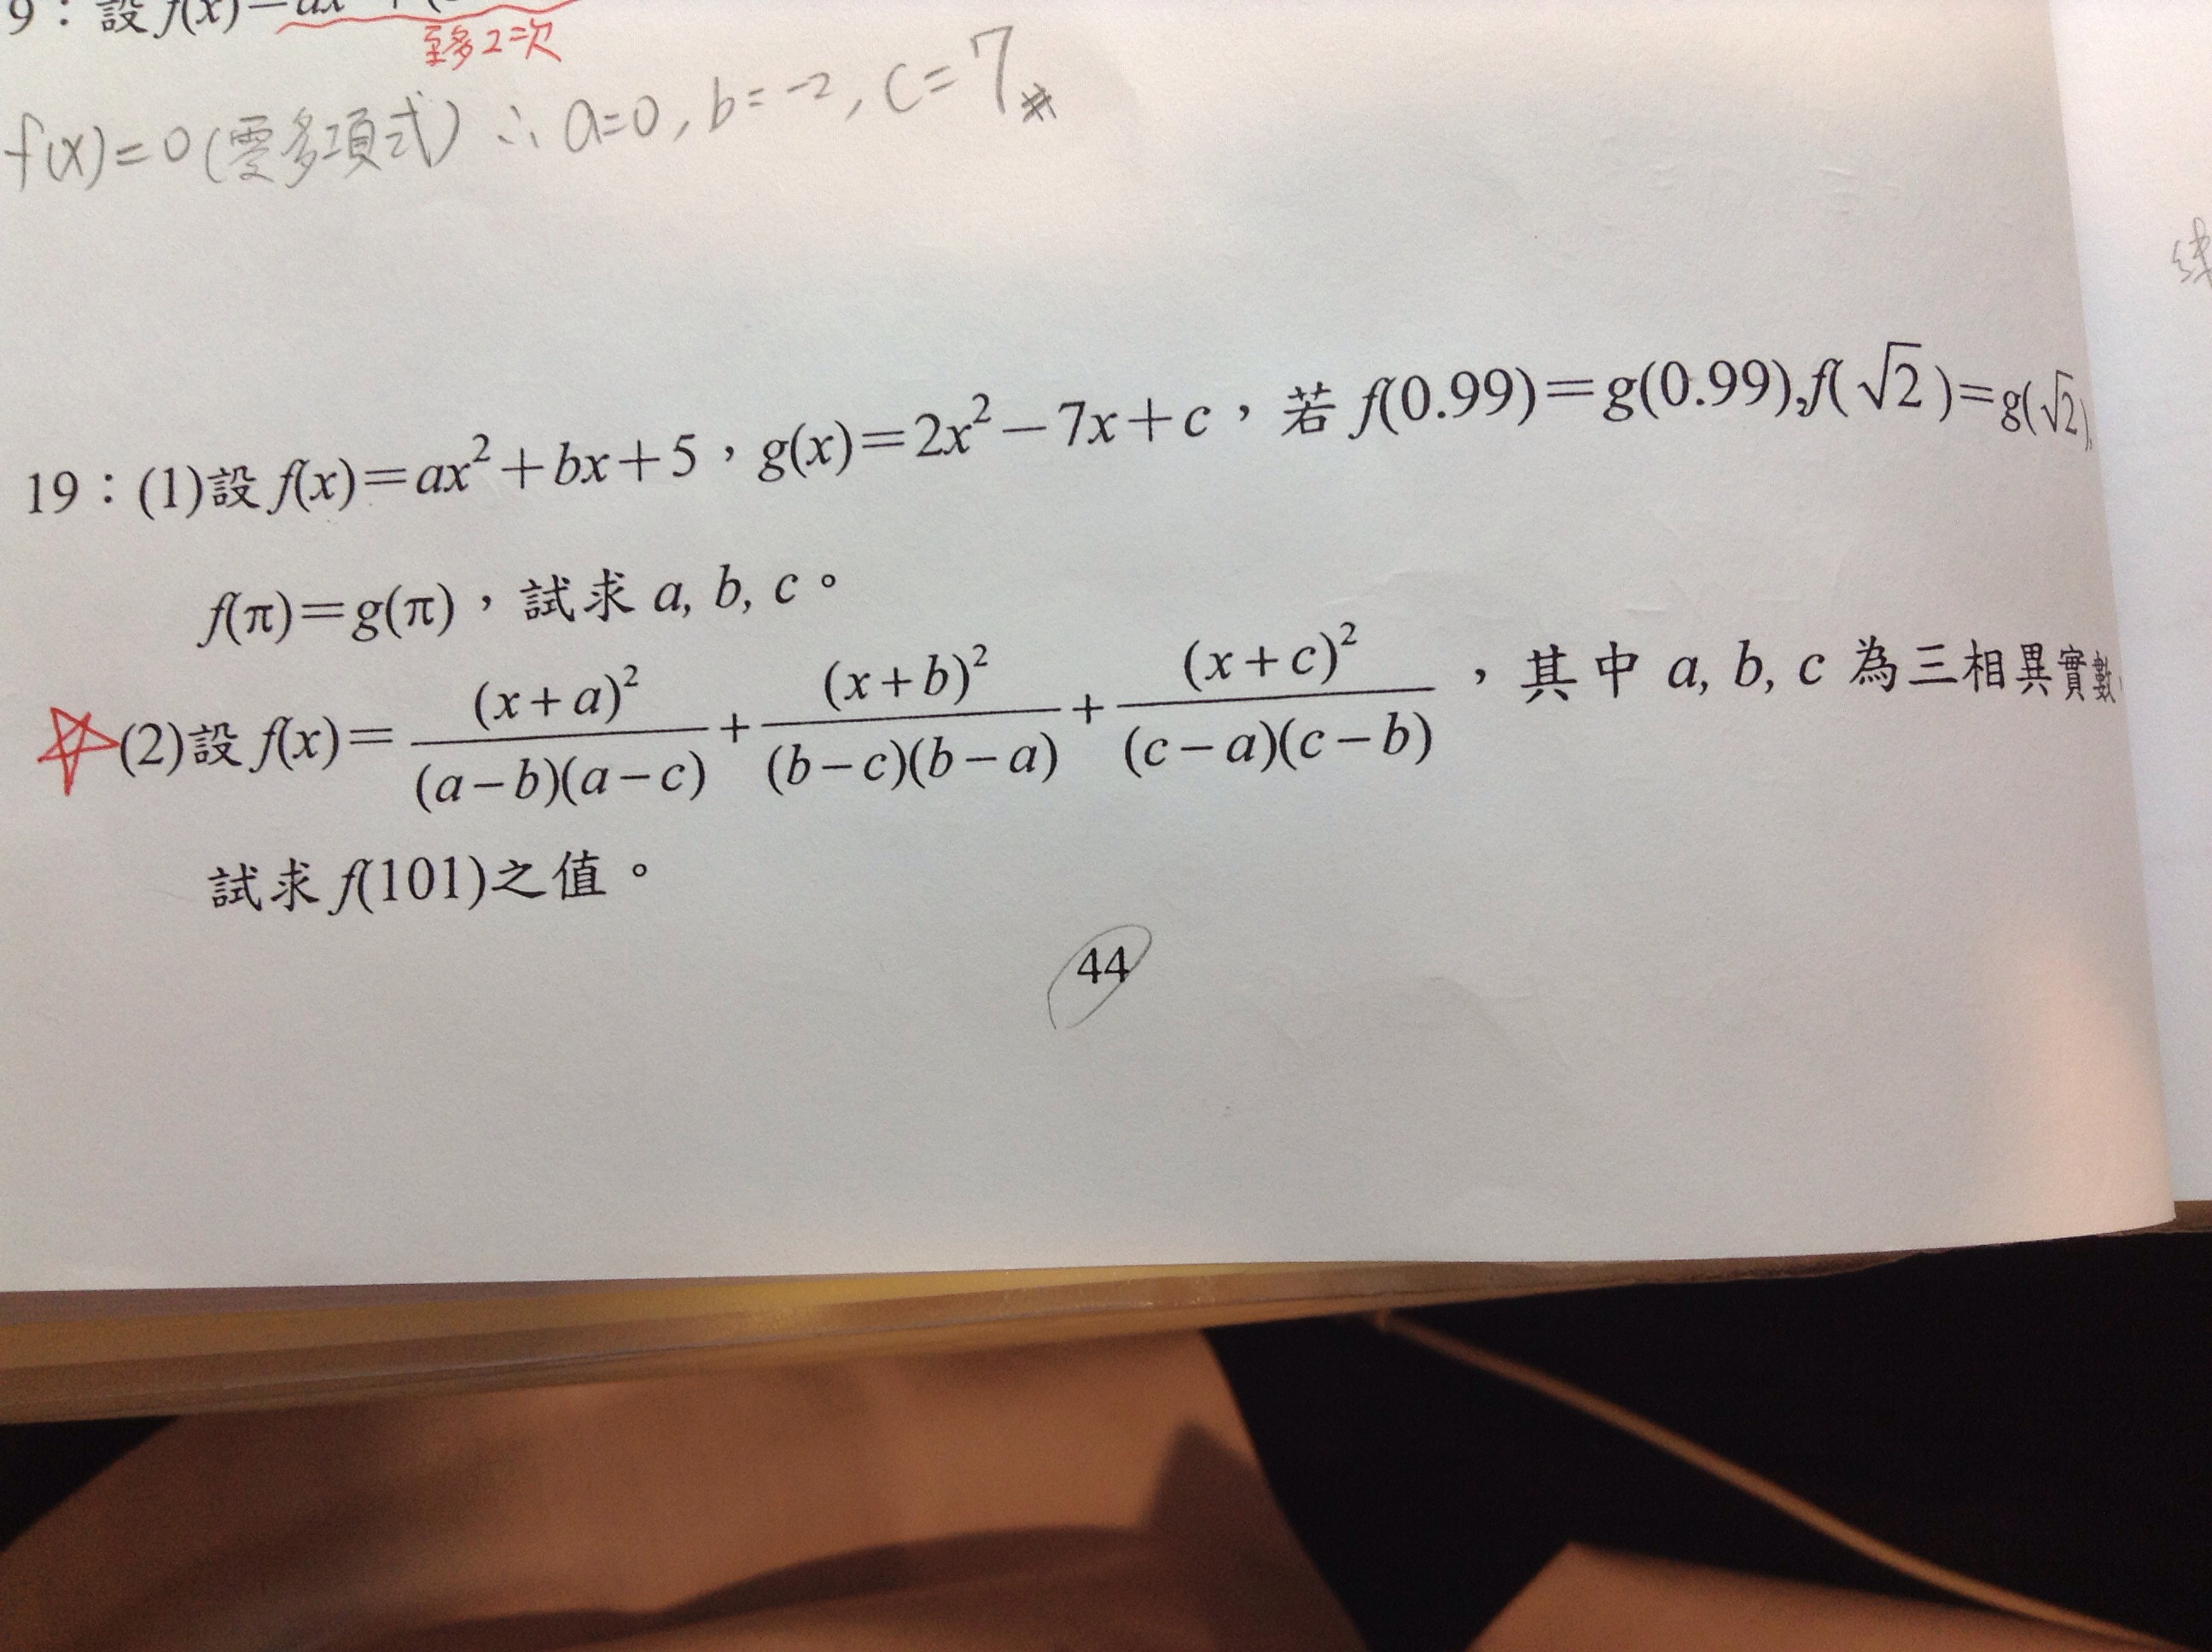 9：設 f(x)=ax
至多2次
f(x)=0(零多項式) ∴ a=0, b=-2, c=7#
19：(1)設 f(x)=ax²+bx+5，g(x)=2x²-7x+c，若 f(0.99)=g(0.99), f(√2)=g(√2),
f(π)=g(π)，試求 a, b, c。
(2)設 f(x)=(x+a)²/(a-b)(a-c)+(x+b)²/(b-c)(b-a)+(x+c)²/(c-a)(c-b)，其中 a, b, c 為三相異實數
試求 f(101)之值。
44